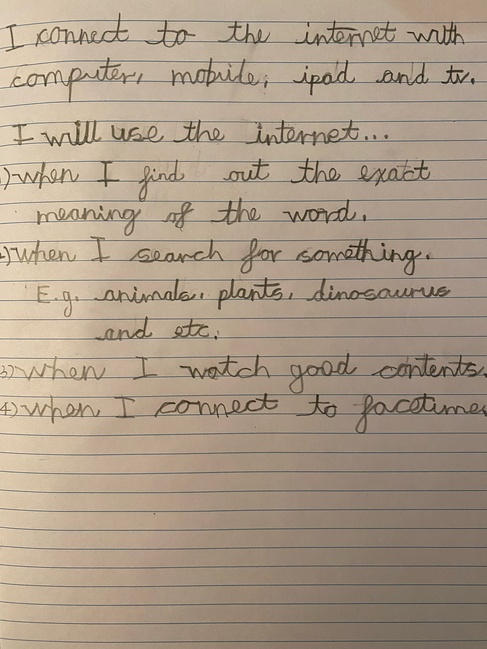 I connect to the internet with
computer, mobile, ipad and tv.
I will use the internet...
1) when I find out the exact
meaning of the word.
2) when I search for something.
E.g. animals, plants, dinosaurus
and etc.
3) when I watch good contents.
4) when I connect to facetime.